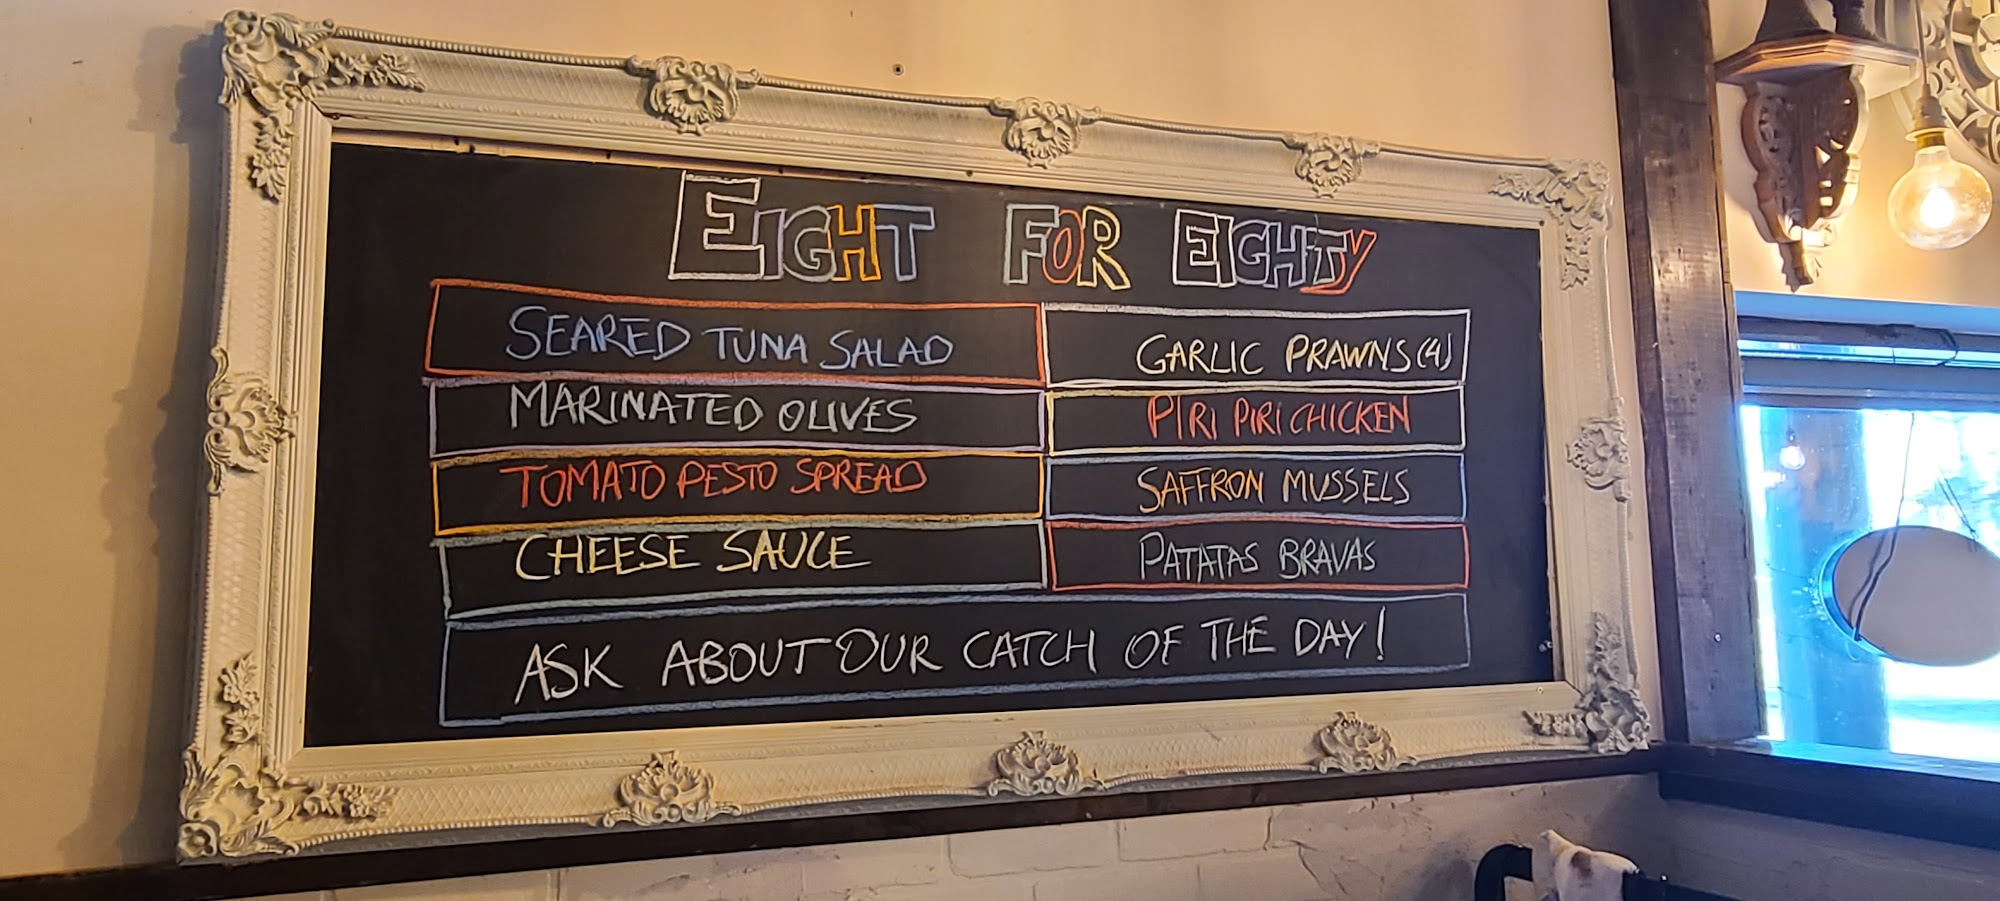 EIGHT FOR EIGHTY
SEARED TUNA SALAD
GARLIC PRAWNS (4)
MARINATED OLIVES
PIRI PIRI CHICKEN
TOMATO PESTO SPREAD
SAFFRON MUSSELS
CHEESE SAUCE
PATATAS BRAVAS
ASK ABOUT OUR CATCH OF THE DAY!